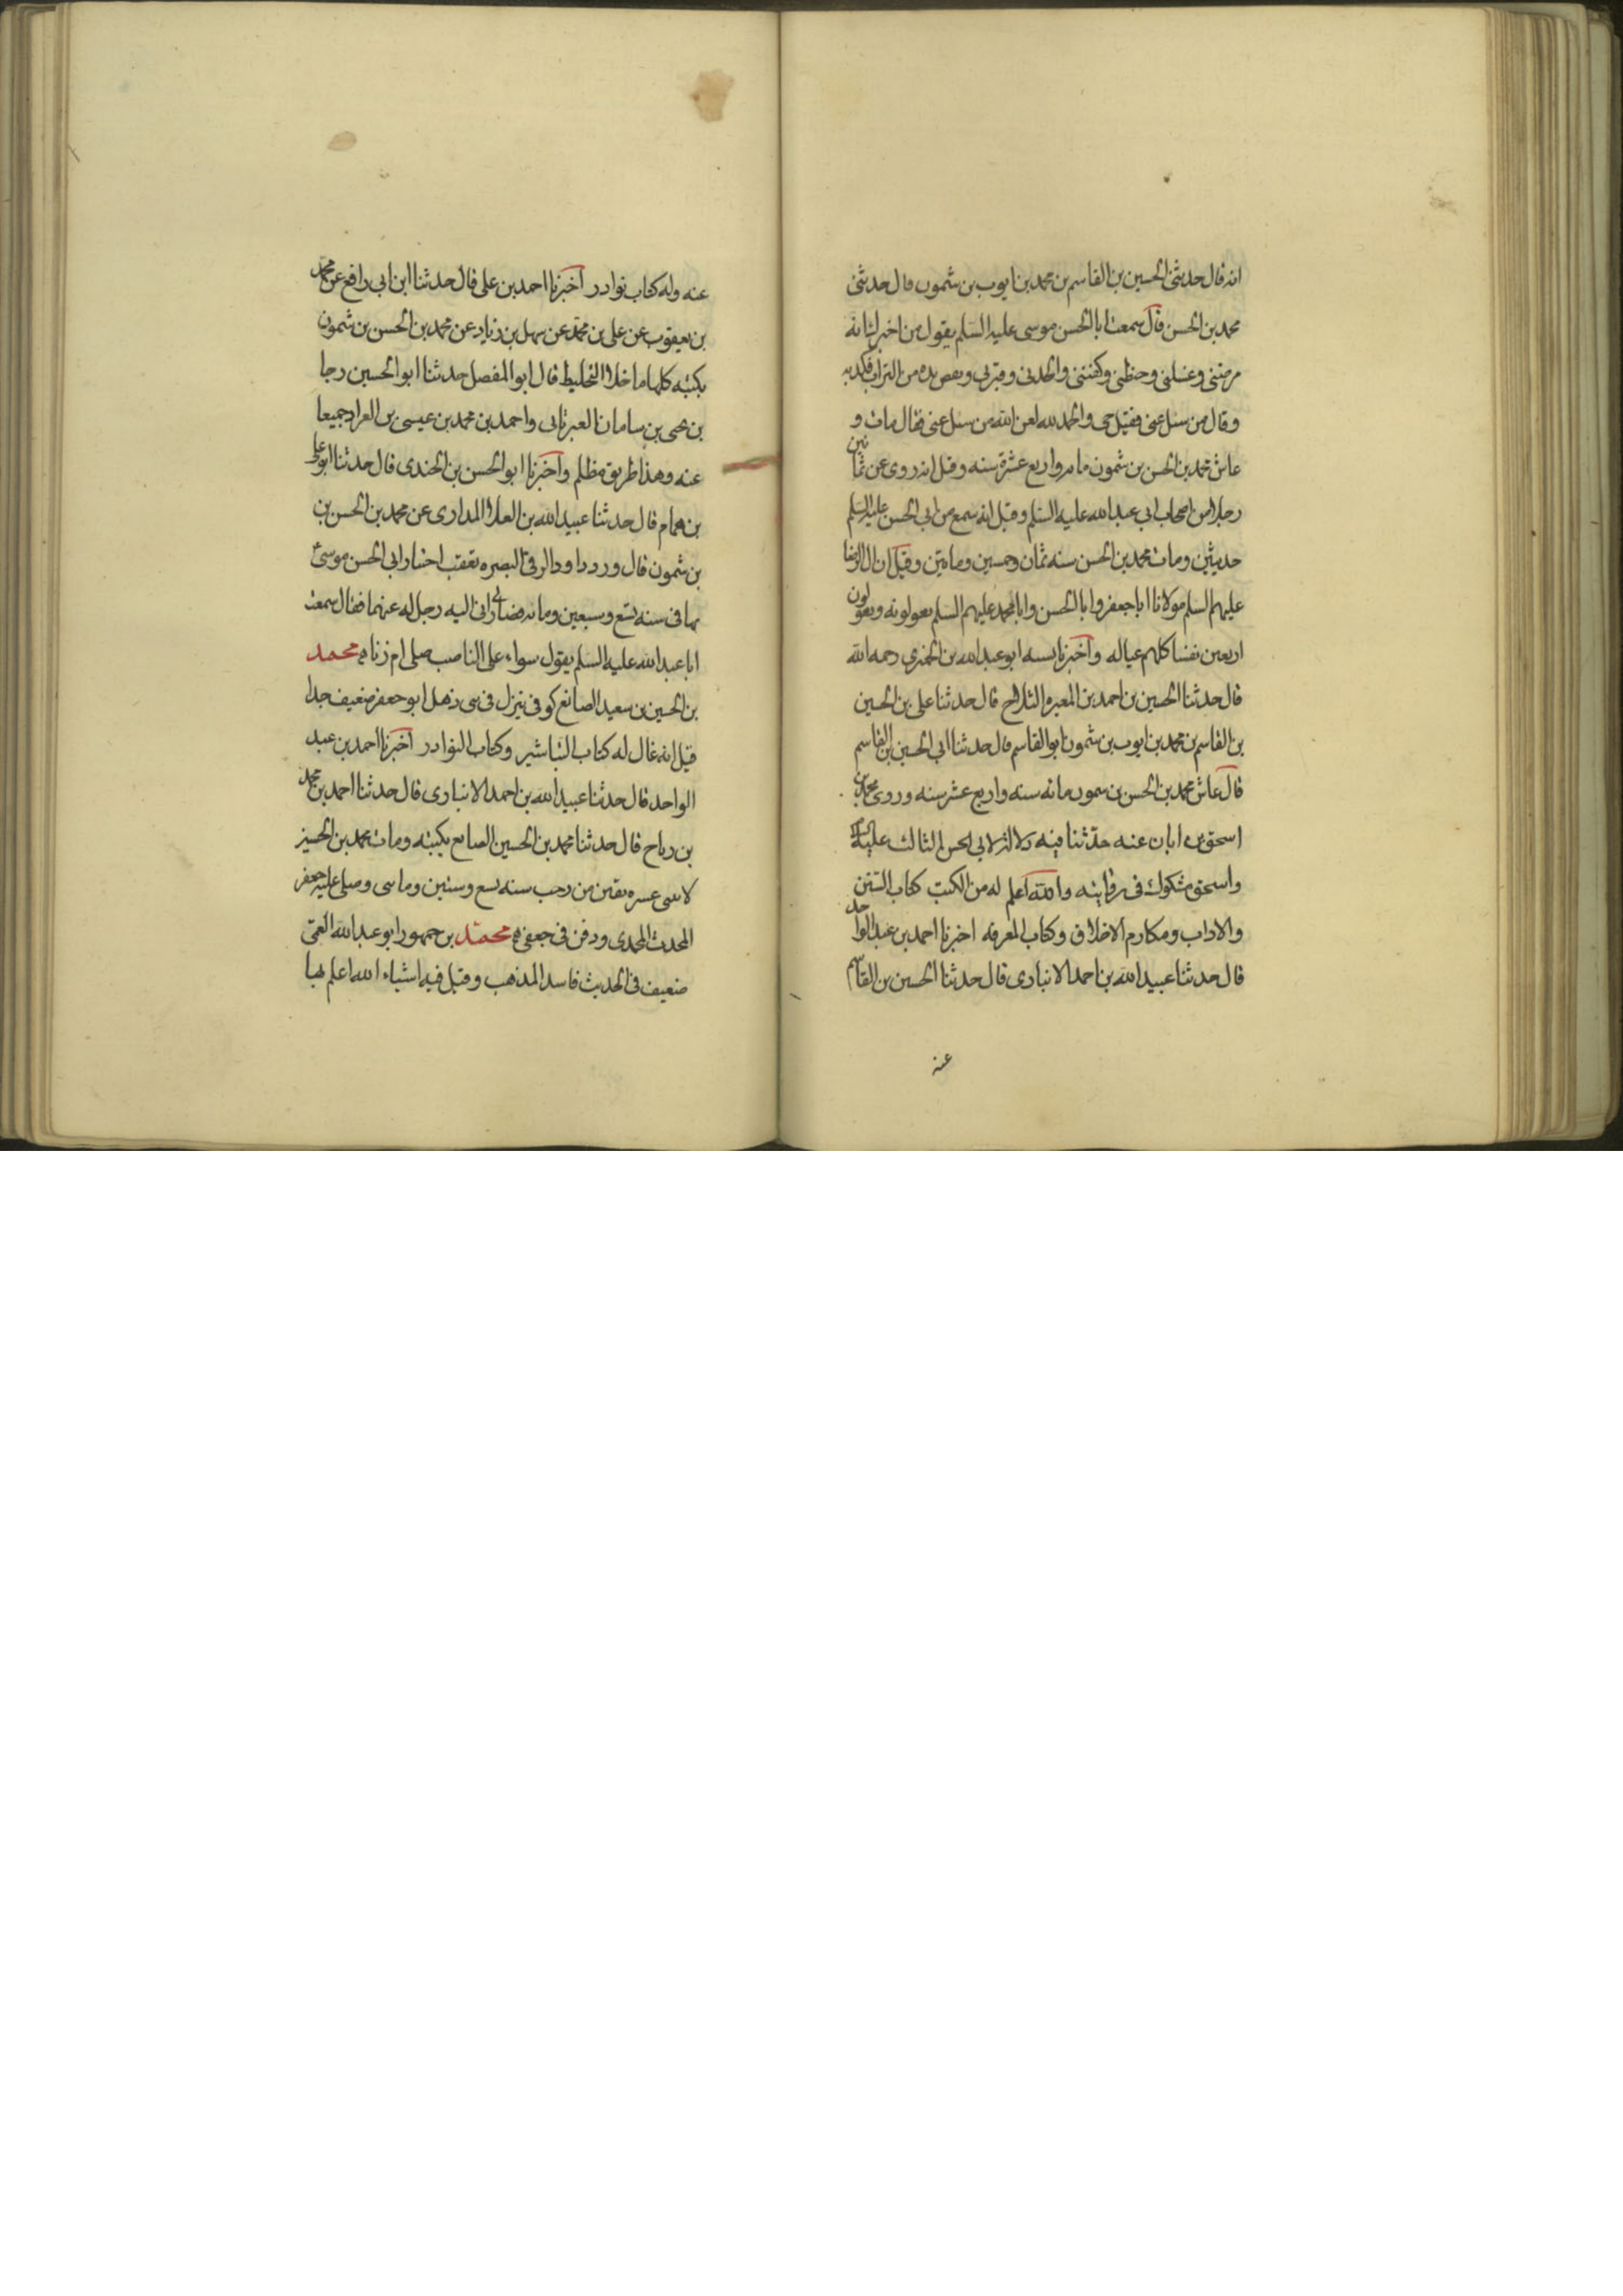 انه قال حدثنى الحسين بن القاسم بن محمد بن ايوب بن شمون قال حدثنى
محمد بن الحسن قال سمعت ابا الحسن موسى عليه السلم يقول من اخبرك انه
مرضنى وغسلنى وحنطنى وكفننى والحدنى وقبرنى ونفض يده من التراب فكذبه
وقال من سئل عنى فقيل حى والحمد لله لعن الله من سئل عنى فقال مات و
عاش محمد بن الحسن بن شمون مائه واربع عشرة سنه وقيل انه روى عن ثمانين
رجلا من اصحاب ابى عبد الله عليه السلم وقيل انه سمع من ابى الحسن عليه السلم
حديثين ومات محمد بن الحسن سنه ثمان وخمسين وماتين وقيل ان ال الرضا
عليهم السلم مولانا ابا جعفر وابا الحسن وابا محمد عليهم السلم يعولونه ويعولون
اربعين نفسا كلهم عياله واخبرنا بسنه ابو عبد الله بن الخمرى رحمه الله
قال حدثنا الحسين بن احمد بن المغيره الثلاج قال حدثنا على بن الحسين
بن القاسم بن محمد بن ايوب بن شمون ابو القاسم قال حدثنا ابى الحسين بن القاسم
قال عاش محمد بن الحسن بن شمون مائه سنه واربع عشر سنه وروى محمد بن
اسحق بن ابان عنه حدثنا فيه دلاله لابى الحسن الثالث عليه السلم
واسحق مشكوك فى روايته والله اعلم له من الكتب كتاب السنن
والاداب ومكارم الاخلاق وكتاب المعرفه اخبرنا احمد بن عبد الواحد
قال حدثنا عبيد الله بن احمد الانبارى قال حدثنا الحسين بن القاسم
عنه
عنه وله كتاب نوادر اخبرنا احمد بن على قال حدثنا ابن ابى رافع عن محمد
بن يعقوب عن على بن محمد عن سهل بن زياد عن محمد بن الحسن بن شمون
بكتبه كلها ما خلا التخليط قال ابو المفضل حدثنا ابو الحسين رجا
بن يحيى بن سامان العبرتائى واحمد بن محمد بن عيسى بن العراد جميعا
عنه وهذا طريق مظلم واخبرنا ابو الحسن بن الجندى قال حدثنا ابو على
بن همام قال حدثنا عبيد الله بن العلا المدارى عن محمد بن الحسن بن
بن شمون قال ورد داود الرقى البصره بعقب اجتياز ابى الحسن موسى
بها فى سنه تسع وسبعين ومائه فصار بى ابى اليه رجل له عنهما فقال سمعت
ابا عبد الله عليه السلم يقول سواء على الناصب صلى ام زنا محمد
بن الحسين بن سعيد الصائغ كوفى نزل فى بنى ذهل ابو جعفر ضعيف جدا
قيل انه غال له كتاب التباشير وكتاب النوادر اخبرنا احمد بن عبد
الواحد قال حدثنا عبيد الله بن احمد الانبارى قال حدثنا احمد بن محمد
بن رباح قال حدثنا محمد بن الحسين الصايغ بكتبه ومات محمد بن الحسين
لاثنى عشره بقين من رجب سنه تسع وستين وماتى وصلى عليه جعفر
المحدث المحمدى ودفن فى جعفى محمد بن جمهور ابو عبد الله العمى
ضعيف فى الحديث فاسد المذهب وقيل فيه اشياء الله اعلم بها